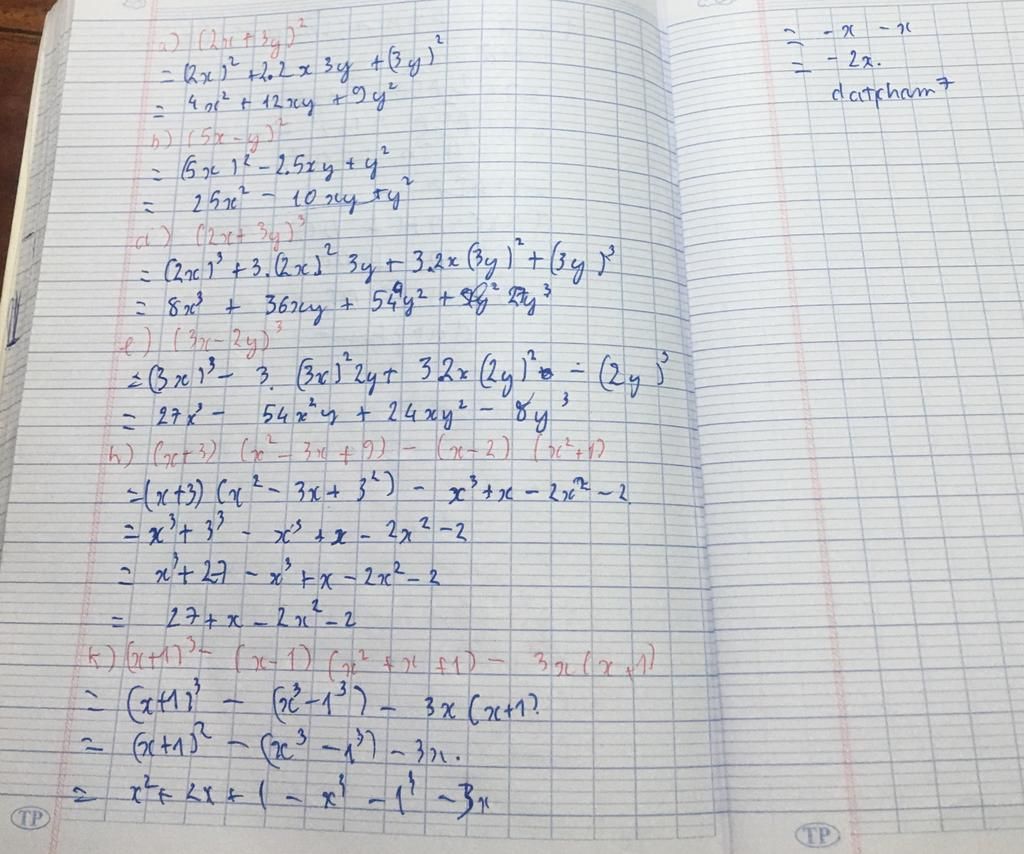 a) (2x+3y)²
= (2x)² + 2.2x 3y + (3y)²
= 4x² + 12xy + 9y²
b) (5x-y)²
= (5x)² - 2.5xy + y²
= 25x² - 10xy + y²
d) (2x+3y)³
= (2x)³ + 3.(2x)² 3y + 3.2x (3y)² + (3y)³
= 8x³ + 36xy + 54y² + 27y³
e) (3x-2y)³
= (3x)³ - 3. (3x)² 2y + 3 2x (2y)² - (2y)³
= 27x³ - 54x²y + 24xy² - 8y³
h) (x+3) (x² - 3x + 9) - (x-2) (x²+1)
= (x+3) (x² - 3x + 3²) - x³ + x - 2x² - 2
= x³ + 3³ - x³ + x - 2x² - 2
= x³ + 27 - x³ + x - 2x² - 2
= 27 + x - 2x² - 2
k) (x+1)³ - (x-1) (x² + x + 1) - 3x (x+1)
= (x+1)³ - (x³-1³) - 3x (x+1)
= (x+1)² - (x³ - 1³) - 3x.
= x² + 2x + 1 - x³ - 1³ - 3x
TP
= -x - x
= -2x.
datpham7
TP